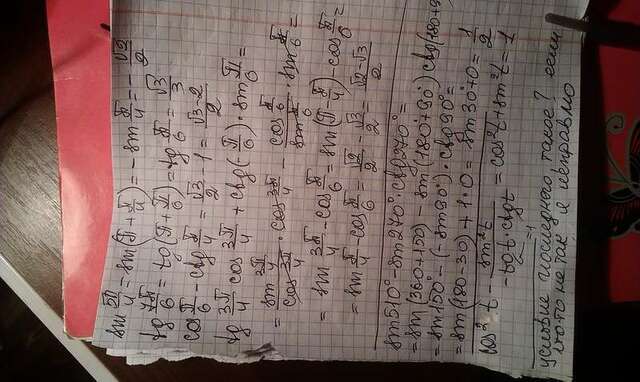 sin 5π/4 = sin(π + π/4) = -sin π/4 = -√2/2
tg 7π/6 = tg(π + π/6) = tg π/6 = √3/3
cos π/6 - ctg π/4 = √3/2 - 1 = √3-2/2
tg 3π/4 cos 3π/4 + ctg(-π/6) · sin π/6 =
= sin 3π/4 / cos 3π/4 · cos 3π/4 - cos π/6 / sin π/6 · sin π/6 =
= sin 3π/4 - cos π/6 = sin(π - π/4) - cos π/6 =
= sin π/4 - cos π/6 = √2/2 - √3/2 = √2-√3/2
sin510° - sin240° · ctg270° =
= sin(360+150) - sin(180°+90°) ctg(180+9
= sin150° - (-sin90°) · ctg90° =
= sin(180-30) + 1·0 = sin30+0 = 1/2
cos² t - sin² t / -tgt·ctgt = cos²t + sin²t = 1
=1
условие последнего такое? если
что-то не так, я исправлю